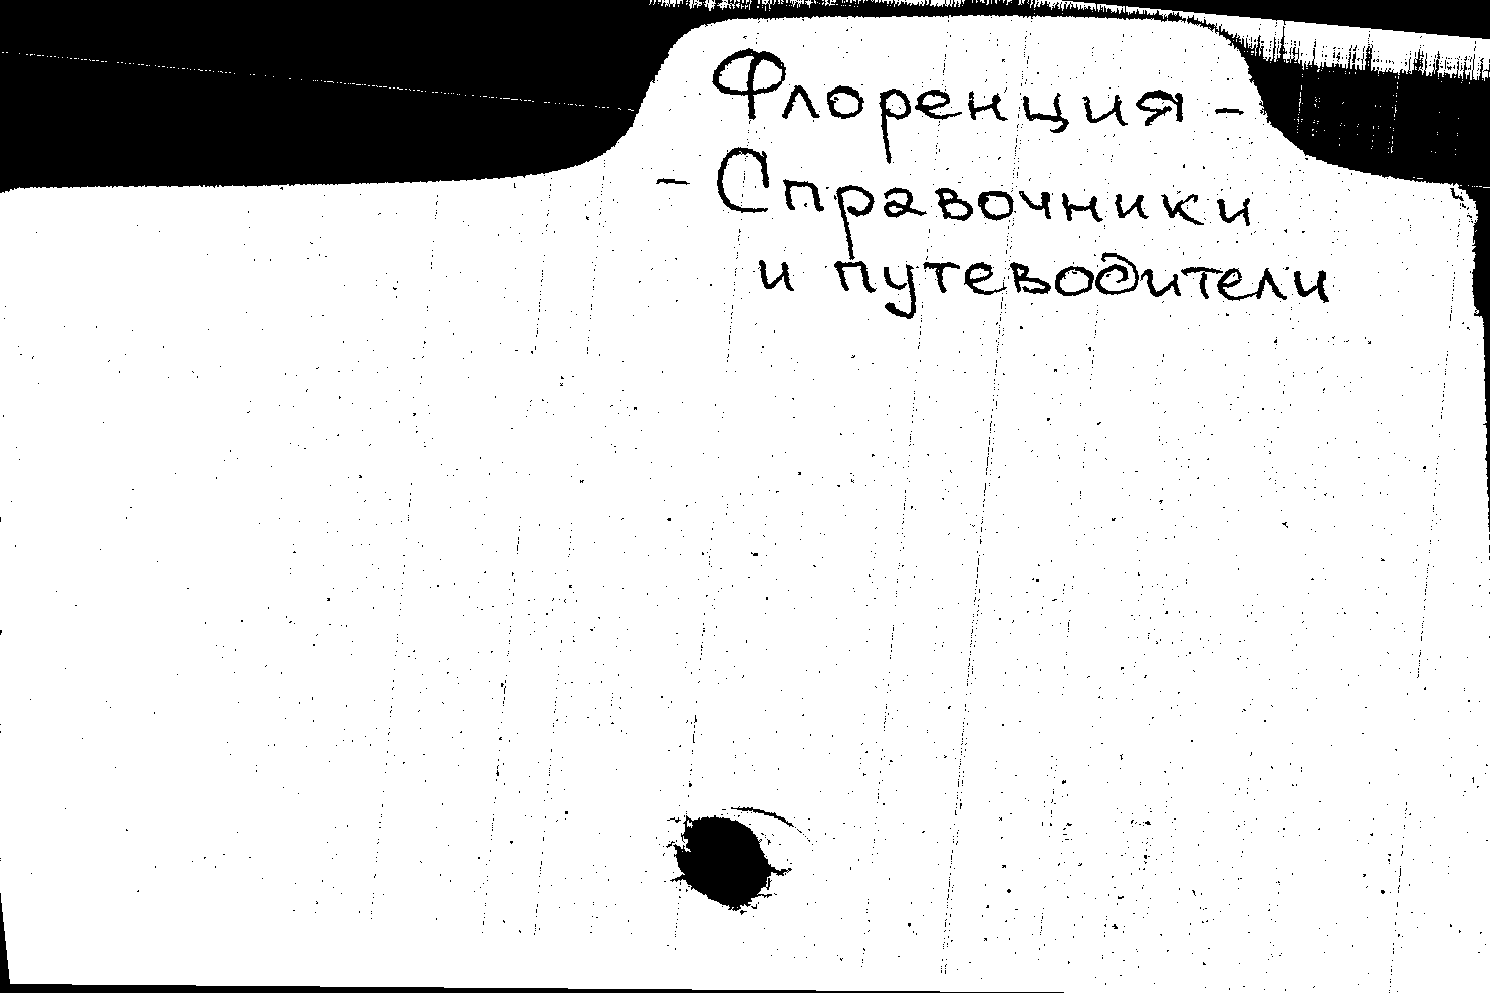 Флоренция -
- Справочники
и путеводители